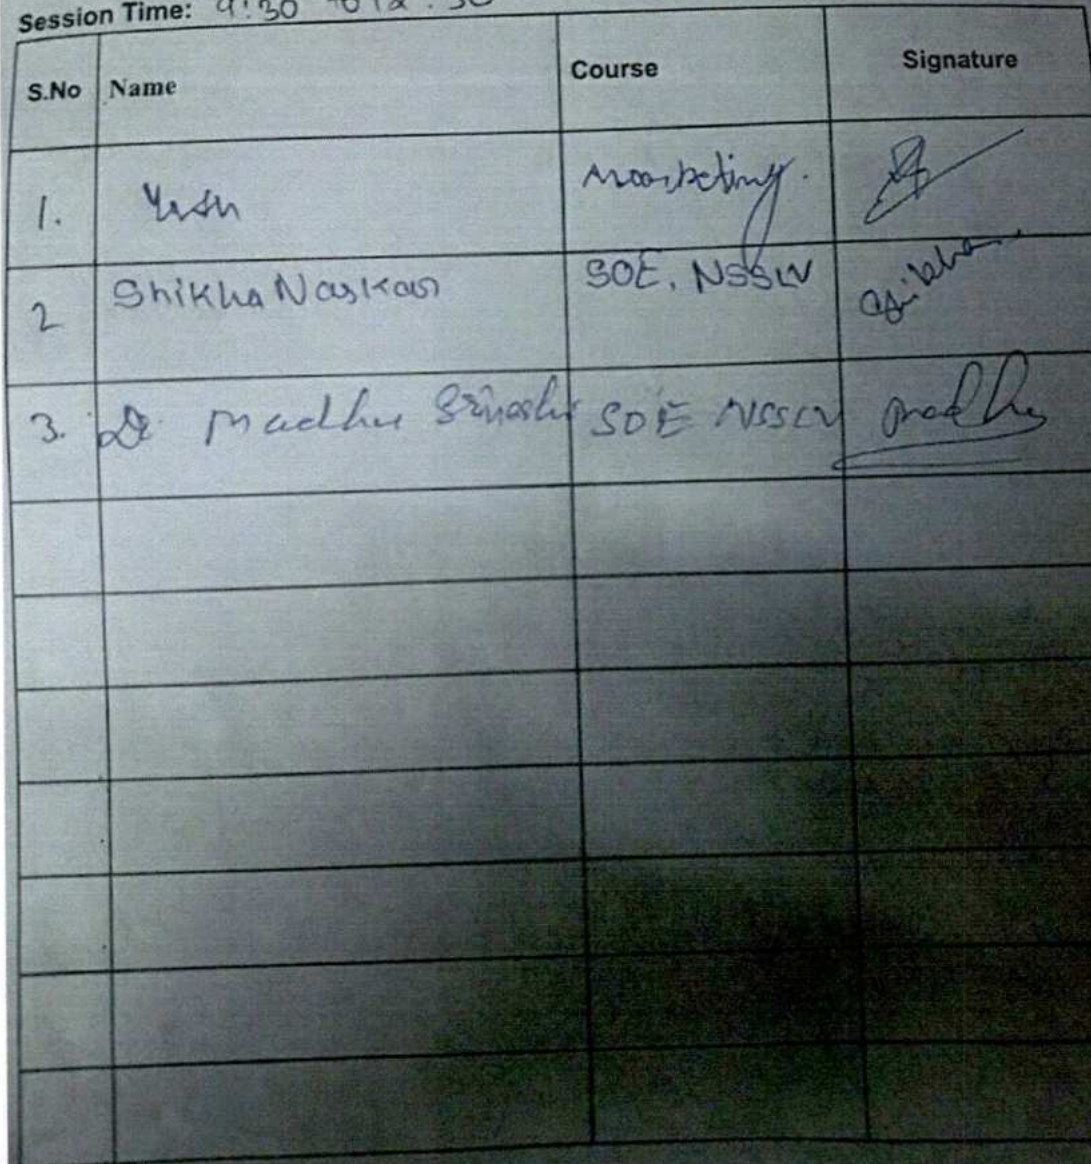 Session Time: 9:30 to 12:30
S.No Name Course Signature
1. Yash Marketing.
2 Shikha Naskar SOE, NSSLV Shikha
3. Dr. Madhu SOE NSSLV Madhu